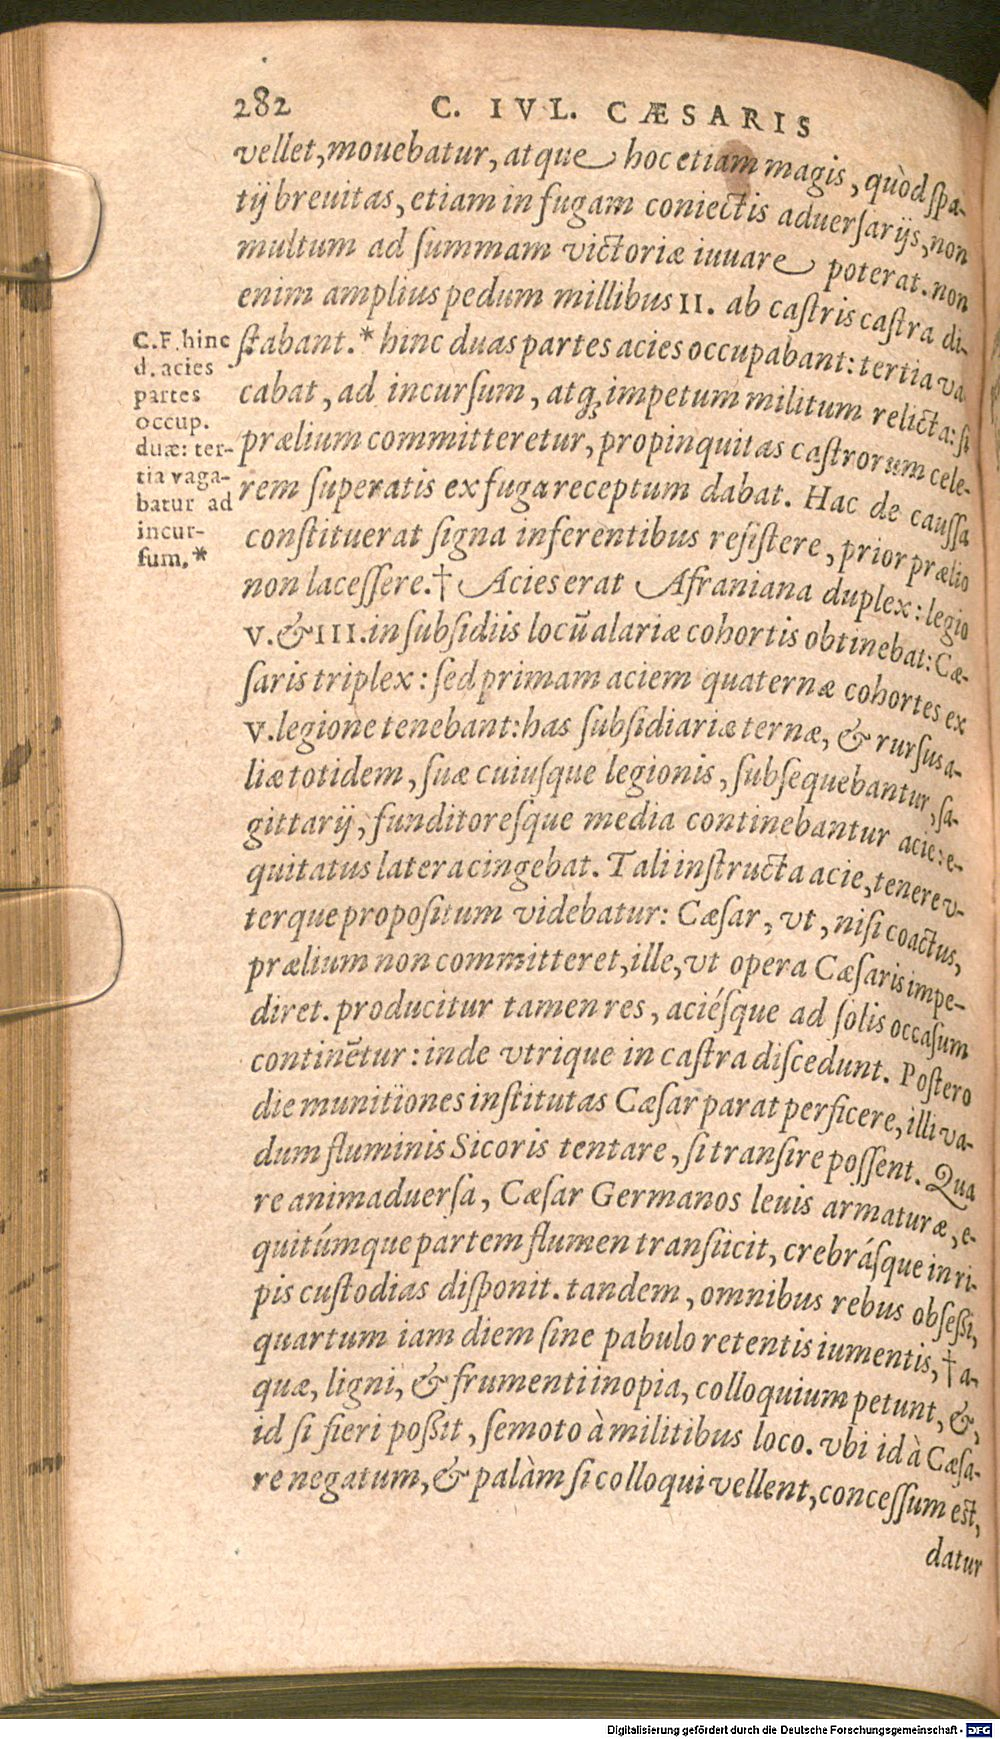 282 C. IVL. CÆSARIS
vellet, mouebatur, atque hoc etiam magis, quòd spa-
tij breuitas, etiam in fugam coniectis aduersarijs, non
multum ad summam victoriæ iuuare poterat. non
enim amplius pedum millibus II. ab castris castra di-
stabant.* hinc duas partes acies occupabant: tertia va
cabat, ad incursum, atq; impetum militum relicta: si
prælium committeretur, propinquitas castrorum cele-
rem superatis ex fuga receptum dabat. Hac de caussa
constituerat signa inferentibus resistere, prior prælio
non lacessere.† Acies erat Afraniana duplex: legio
V. & III. in subsidiis locū alariæ cohortis obtinebat: Cæ-
saris triplex: sed primam aciem quaternæ cohortes ex
V. legione tenebant: has subsidiariæ ternæ, & rursus a-
liæ totidem, suæ cuiusque legionis, subsequebantur, sa-
gittarij, funditoresque media continebantur acie: e-
quitatus latera cingebat. Tali instructa acie, tenere v-
terque propositum videbatur: Cæsar, vt, nisi coactus,
prælium non committeret, ille, vt opera Cæsaris impe-
diret. producitur tamen res, aciésque ad solis occasum
continētur: inde vtrique in castra discedunt. Postero
die munitiones institutas Cæsar parat perficere, illi va-
dum fluminis Sicoris tentare, si transire possent. Qua
re animaduersa, Cæsar Germanos leuis armaturæ, e-
quitúmque partem flumen transiicit, crebrásque in ri-
pis custodias disponit. tandem, omnibus rebus obsessi,
quartum iam diem sine pabulo retentis iumentis, † a-
quæ, ligni, & frumenti inopia, colloquium petunt, &,
id si fieri possit, semoto à militibus loco. vbi id à Cæsa-
re negatum, & palàm si colloqui vellent, concessum est,
datur
C.F. hinc
d. acies
partes
occup.
duæ: ter-
tia vaga-
batur ad
incur-
sum.*
Digitalisierung gefördert durch die Deutsche Forschungsgemeinschaft - DFG